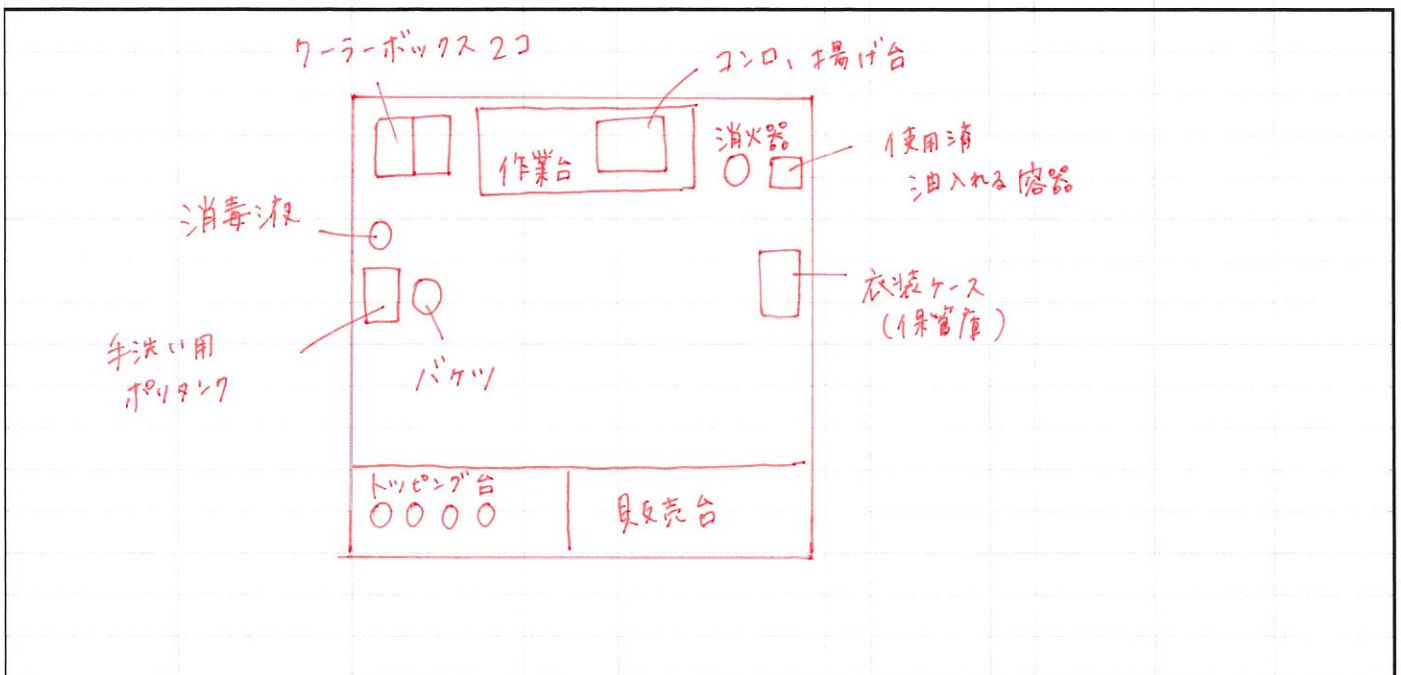 クーラーボックス 2コ
コンロ、揚げ台
消火器
作業台
使用済
油入れる容器
消毒液
衣装ケース
(保管庫)
手洗い用
ポリタンク
バケツ
トッピング台
販売台